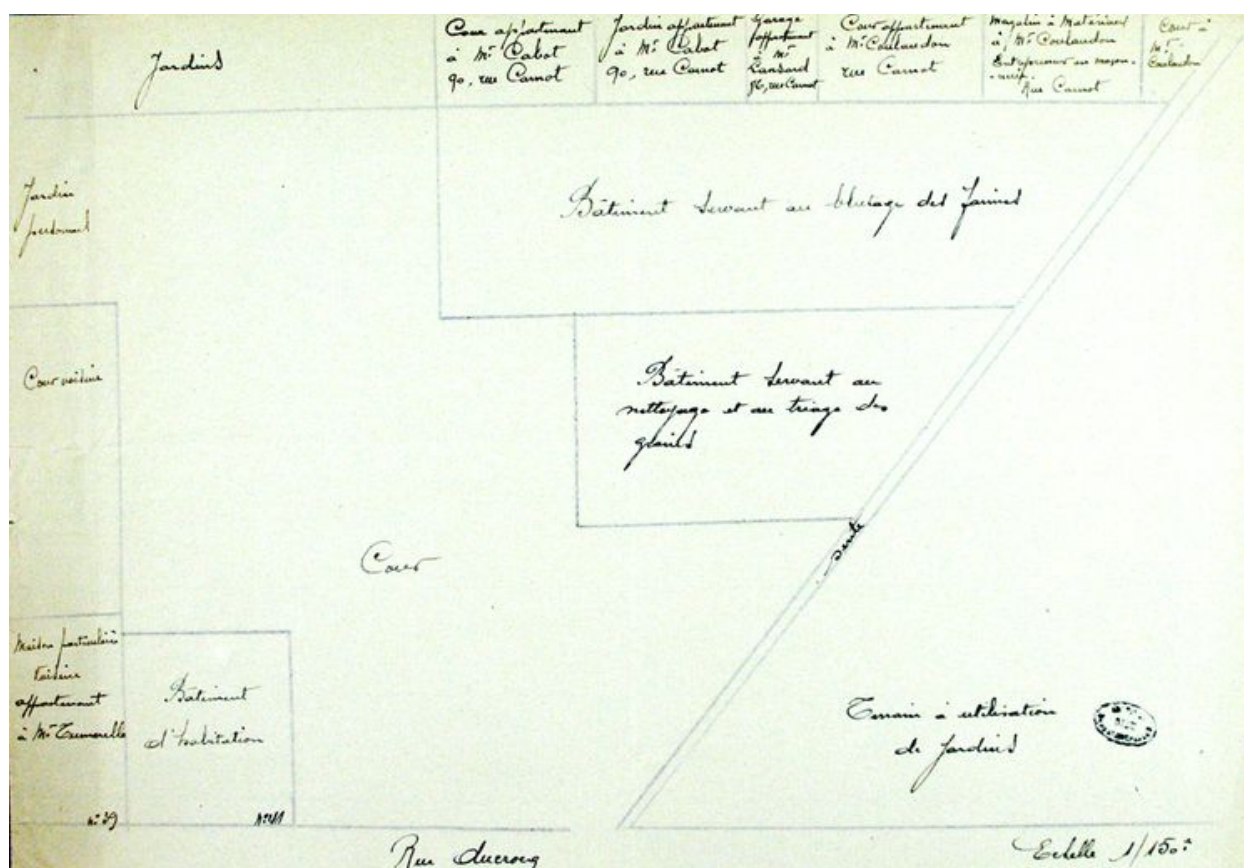 Jardins
Cour appartenant
à Mr Cabot
90, rue Carnot
Jardin appartenant
à Mr Cabot
90, rue Carnot
Garage
appartenant
à Mr
Lansard
86, rue Carnot
Cour appartenant
à Mr Coulaudon
rue Carnot
Magasin à Matériaux
à Mr Coulaudon
Entrepreneur en maçon-
-nerie.
Rue Carnot
Cour à
Mr
Coulaudon
Jardin
personnel
Bâtiment servant au blutage des farines
Cour voisine
Bâtiment servant au
nettoyage et au triage des
grains
sente
Cour
Maison particulière
voisine
appartenant
à Mr
Bâtiment
d'habitation
Terrain à utilisation
de Jardins
n° 39
N° 41
Rue Ducrocq
Echelle 1/150e